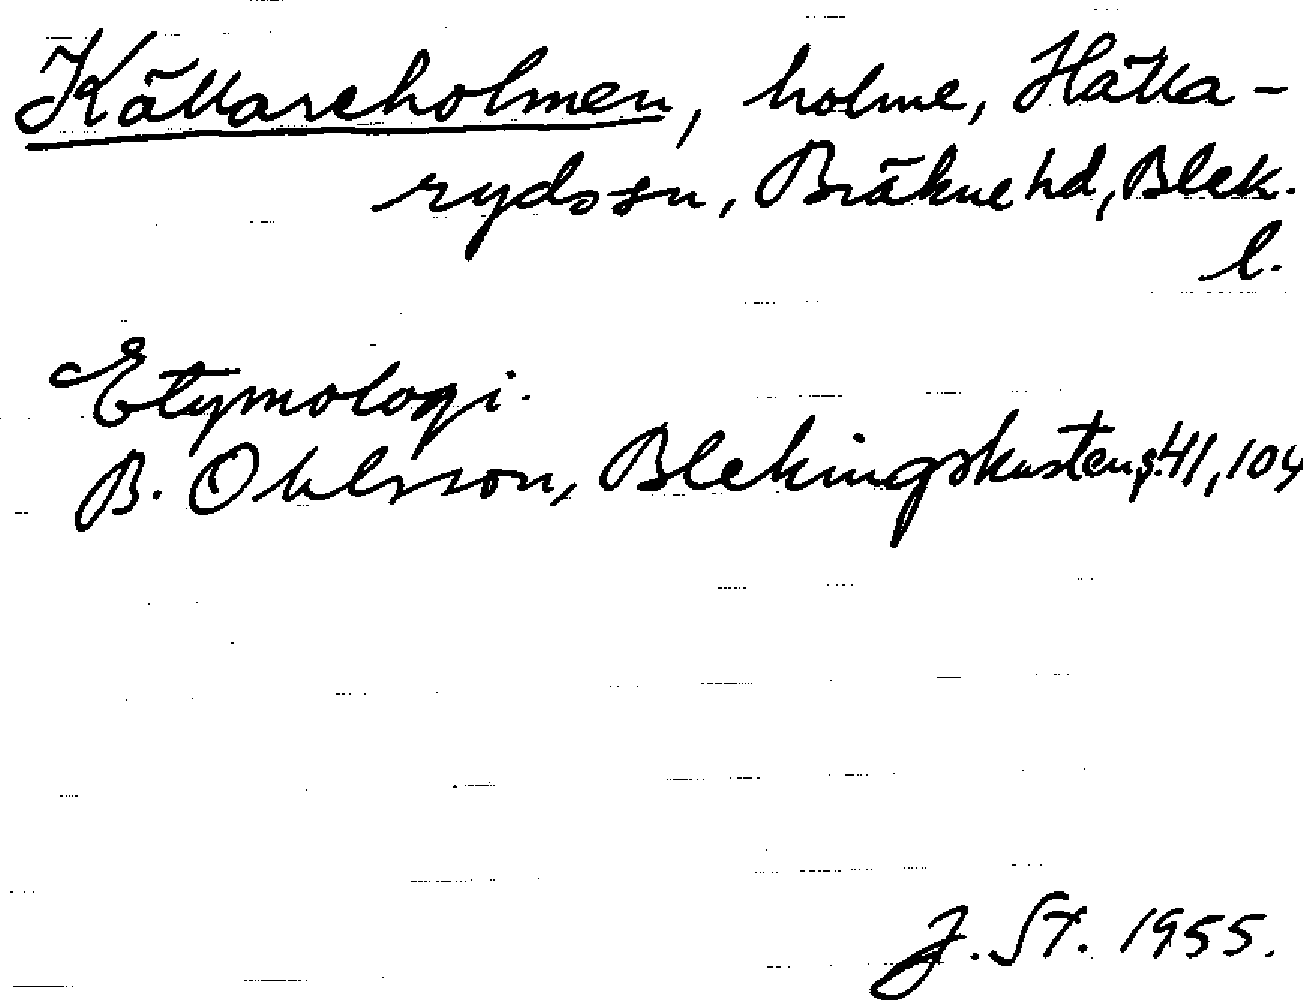 Källareholmen, holme, Hälla-
rydssn, Bräkne hd, Blek.
l.
Etymologi.
B. Ohlsson, Blekingskusten, s. 41, 104
J. St. 1955.